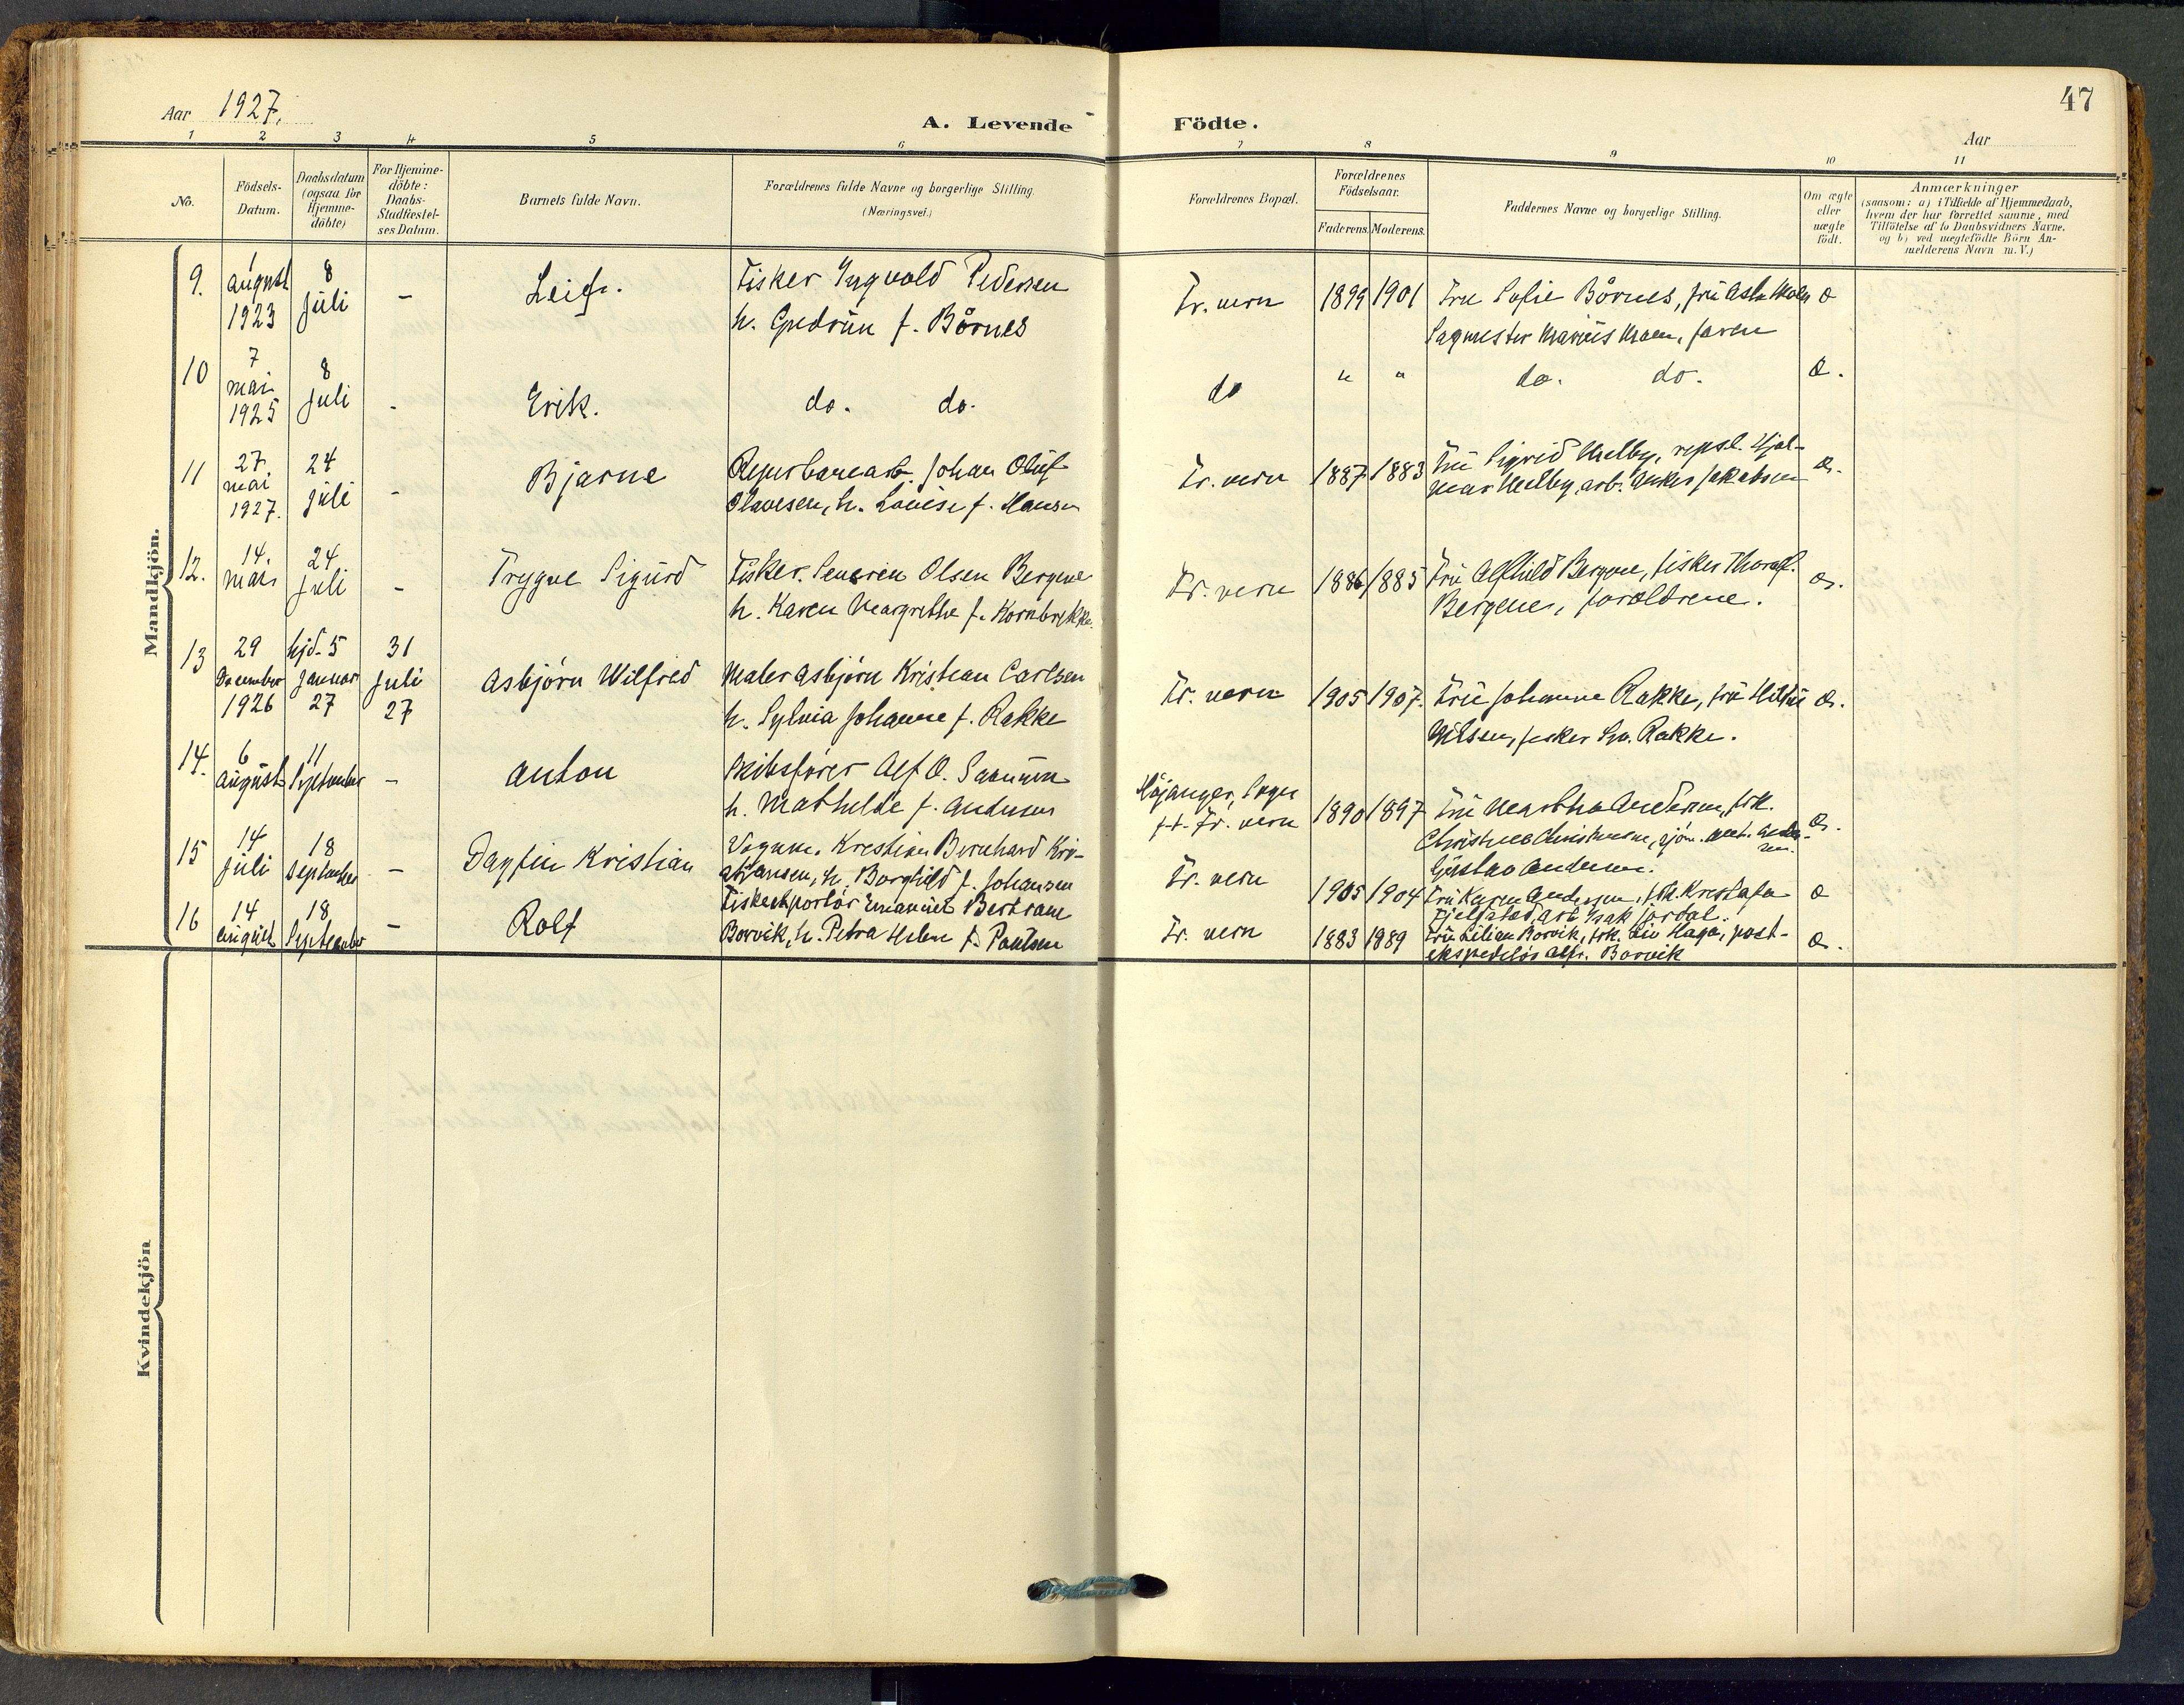 47
Aar 1927.
A. Levende Födte.
Aar
1 2 3 4 5 6 7 8 9 10 11
No.
Födsels-
Datum.
Daabsdatum
(ogsaa for
Hjemme-
döbte)
For Hjemme-
döbte:
Daabs-
Stadfæstel-
ses Datum.
Barnets fulde Navn.
Forældrenes fulde Navne og borgerlige Stilling.
(Næringsvei.)
Forældrenes Bopæl.
Forældrenes
Födselsaar.
Faderens. Moderens.
Faddernes Navne og borgerlige Stilling.
Om ægte
eller
uægte
födt.
Anmærkninger
(saasom: a) i Tilfælde af Hjemmedaab,
hvem der har forrettet samme, med
Tilföielse af to Daabsvidners Navne.
og b) ved uægtefödte Börn An-
melderens Navn m. V.)
Mandkjön.
9.
1
august
1923
8
juli
-
Leif.
Fisker Yngvald Pedersen
h. Gudrun f. Börnes
Fr. vern
1899 1901
Fru Sofie Börnes, fru Asta
Sagmester Marius faren
æ
10
7
mai
1925
8
juli
-
Erik.
do. do.
do
" "
do. do.
æ.
11
27.
mai
1927.
24
juli
-
Bjarne
Repsbanearb. Johan Oluf
Olavesen, h. Louise f. Hansen
Fr. vern
1887 1883
Fru Sigrid Melby, repsl. Hjal-
mar Melby, arb. Anker Jakobsen
æ.
12.
14.
mai
24
juli
-
Trygve Sigurd
Fisker Severin Olsen Bergene
h. Karen Margrethe f. Kornbrekke.
Fr. vern
1886 1885
Fru Alfhild Bergene, fisker Thoralf
Bergene, forældrene.
æ.
13
29
December
1926
hjd. 5
januar
27
31
juli
27
Asbjörn Wilfred
Maler Asbjörn Kristian Carlsen
h. Sylvia Johanne f. Rakke
Fr. vern
1905 1907.
Fru Johanne Rakke, fru
Nilsen, fisker Rakke.
æ.
14.
6
august
11
September
-
Anton
Skibsförer Alf O.
h. Mathilde f. Andersen
Höjanger, Sogn
f.t. Fr. vern
1890 1897
Fru Martha Andersen, frk.
sjöm.
Gustav Andersen.
æ.
15
14
juli
18
September
-
Dagfin Kristian
Vognm. Kristian Bernhard Kri-
stiansen, h. Borghild f. Johansen
Fr. vern
1905 1904
Fru Karen Andersen, frk. Kristofa
Fjelstad, arb. Isak Jordal.
æ
16
14
august
18
September
-
Rolf
Fiskeexportör Emanuel Bertram
Borvik, h. Petra Helen f. Paulsen
Fr. vern
1883 1889
Fru Lilian Borvik, frk. Liv Haga, post-
ekspeditör Alfr. Borvik
æ.
Kvindekjön